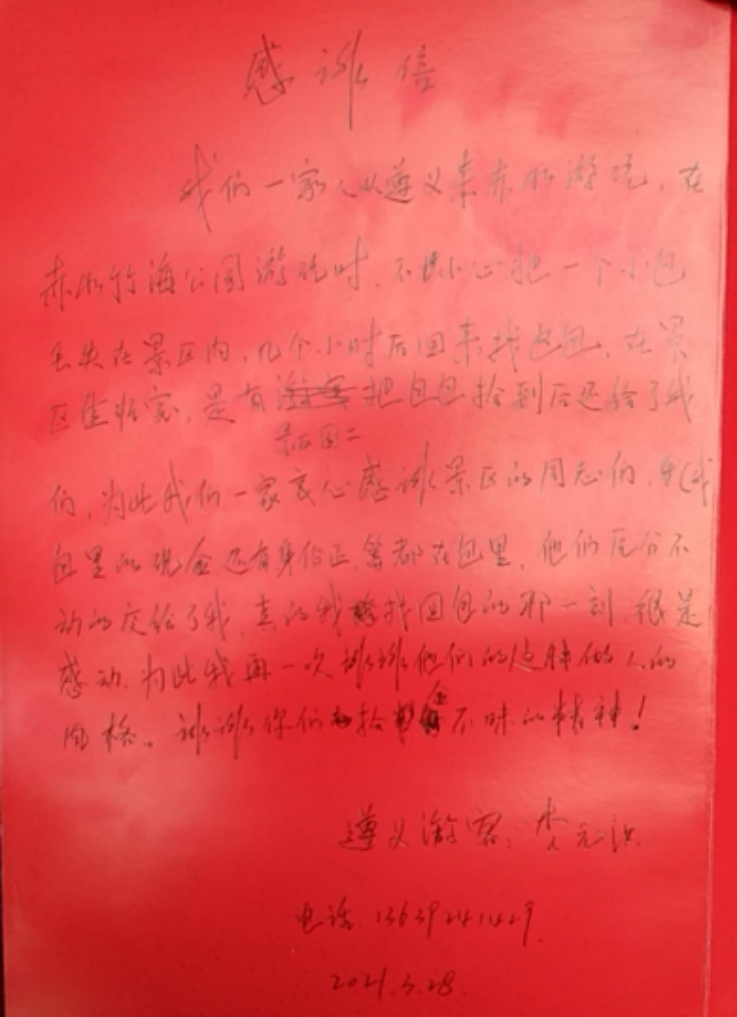 感谢信
我们一家人从遵义来赤水游玩，在
赤水竹海公园游玩时，不小心把一个小包
丢失在景区内，几个小时后回来找这包，在景
区，是有把包包捡到后还给了我
景区员工
们，为此我们一家衷心感谢景区的同志们，我
包里的现金还有身份证等都在包里，他们分不
动的交给了我，真的我找回包的那一刻很是
感动，为此我再一次谢谢他们的这种做人的
风格。谢谢你们拾金不昧的精神！
遵义游客：李元洪
电话
2021.5.28.